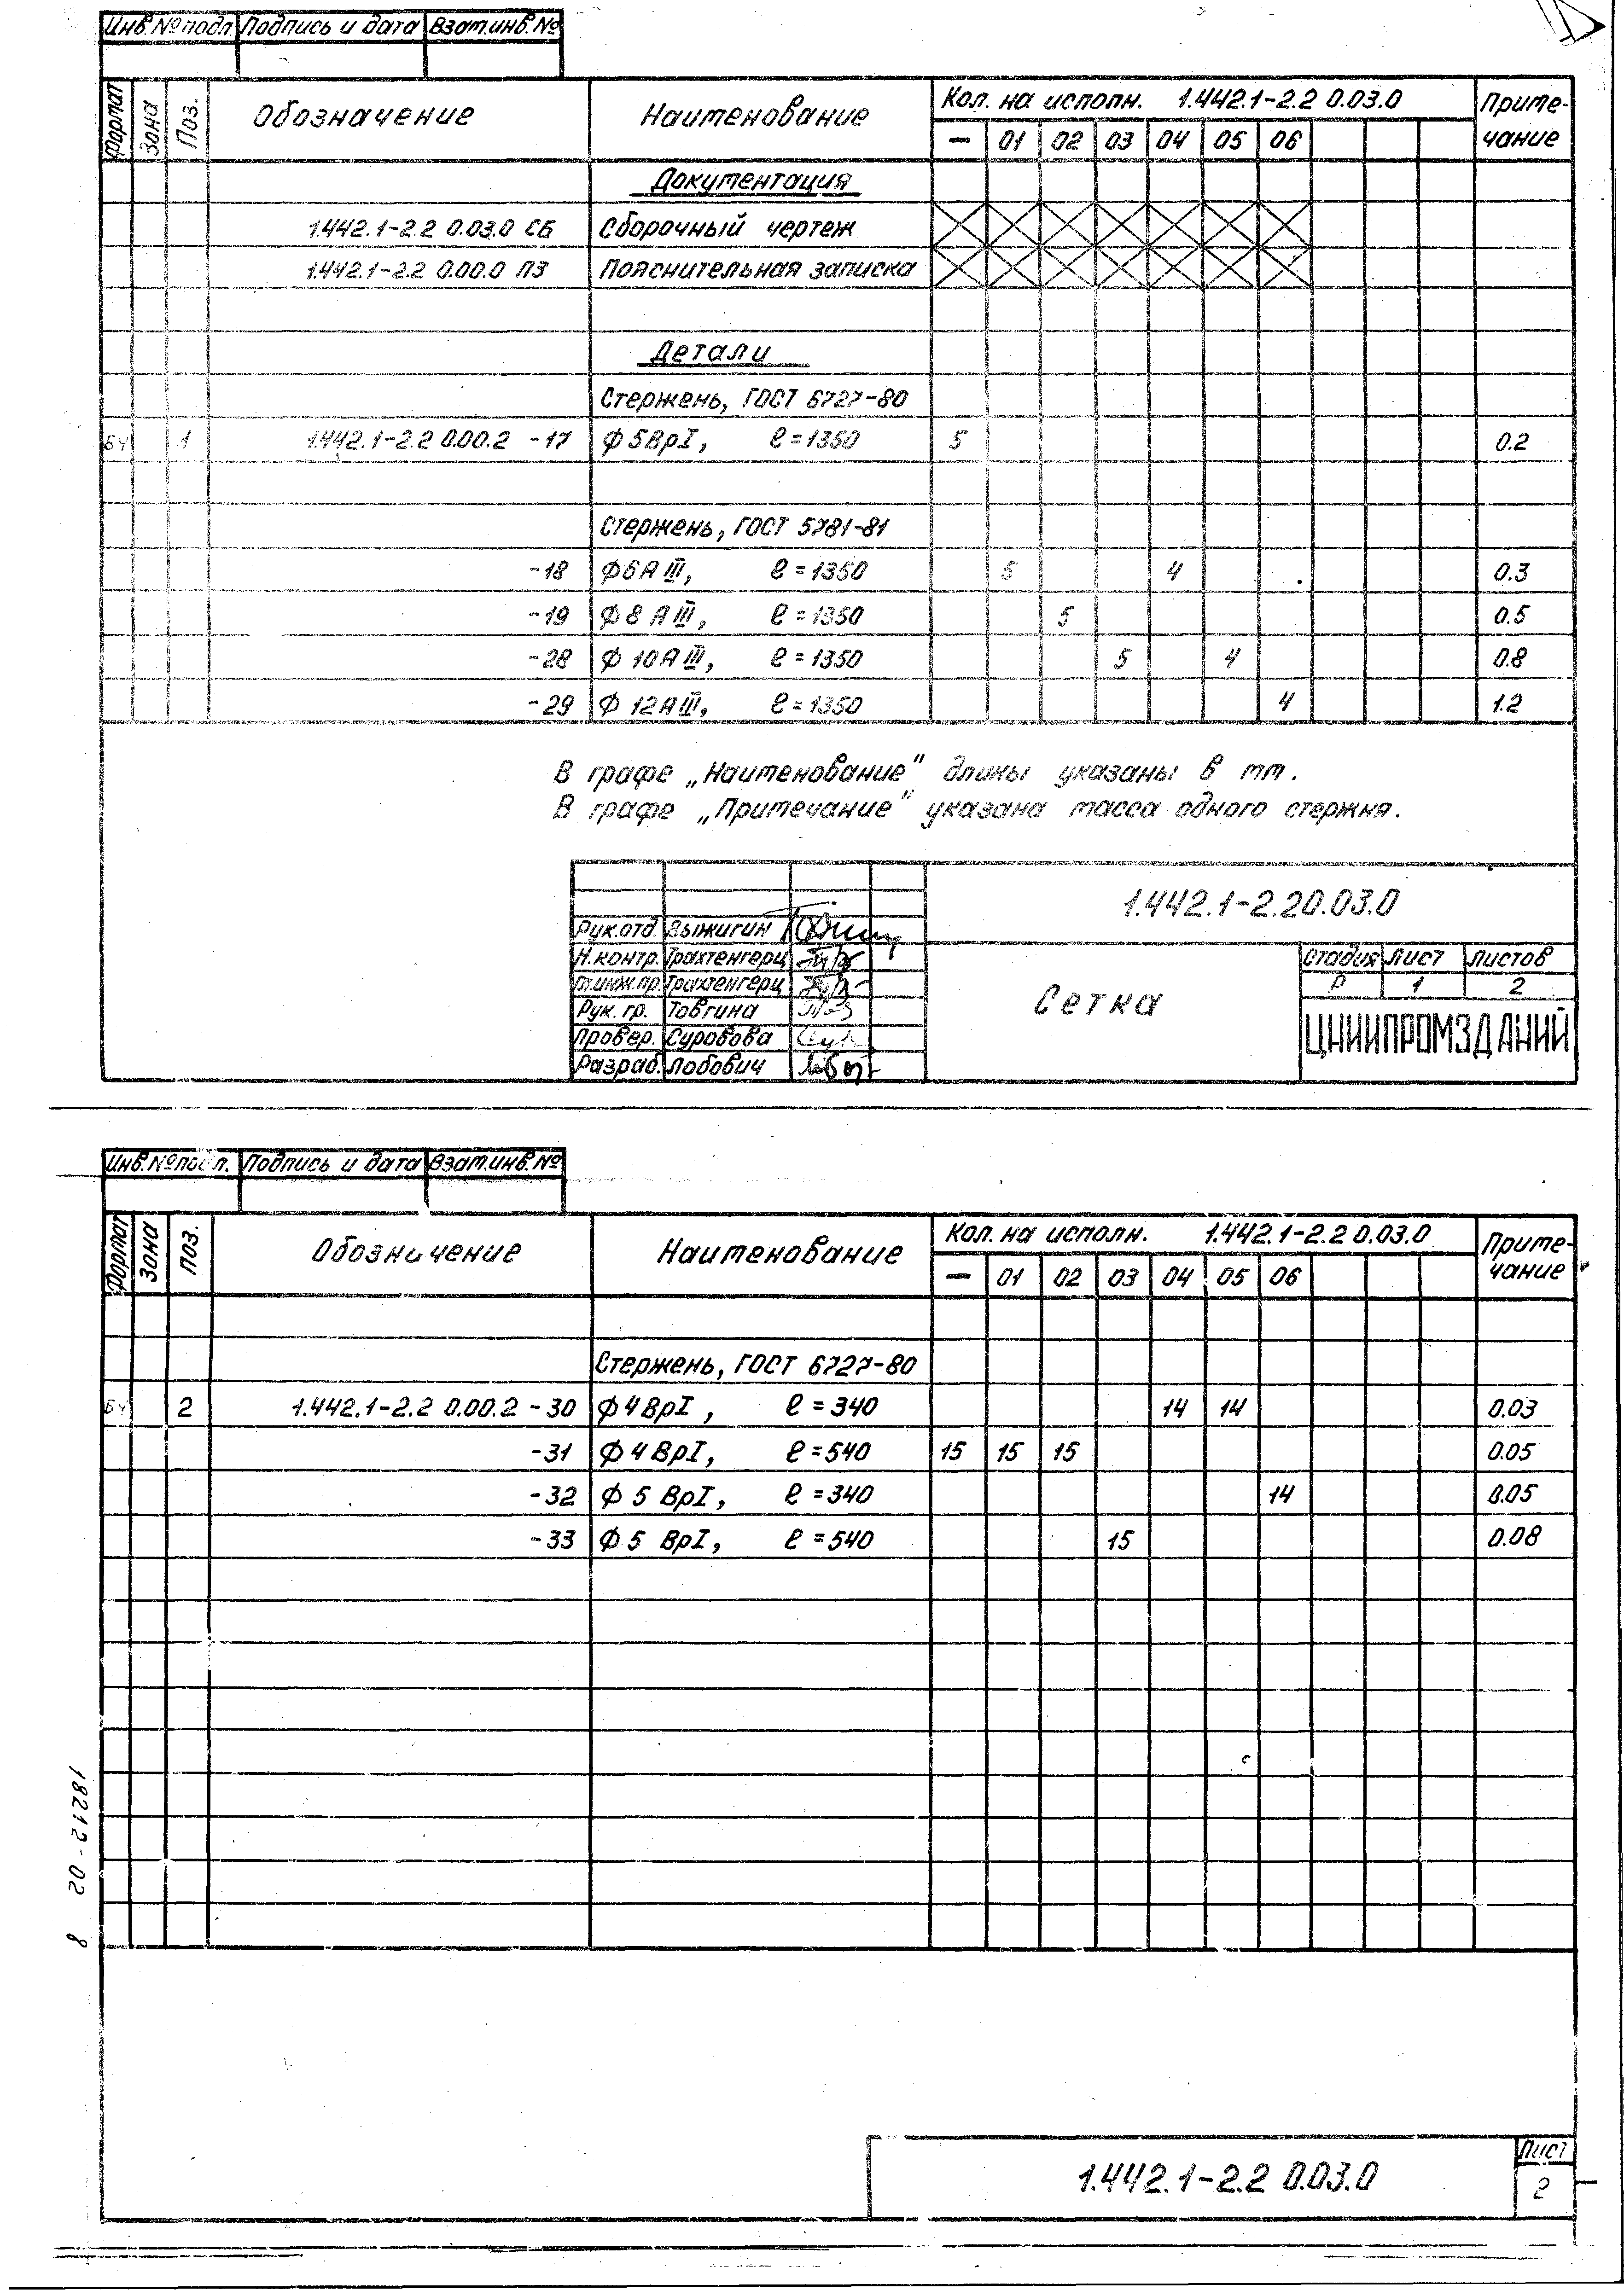 Инв.№подл. Подпись и дата Взам.инв.№
Формат Зона Поз. Обозначение Наименование Кол. на исполн. 1.442.1-2.2 0.03.0 Приме-
— 01 02 03 04 05 06 чание
Документация
1.442.1-2.2 0.03.0 СБ Сборочный чертеж
1.442.1-2.2 0.00.0 ПЗ Пояснительная записка
Детали
Стержень, ГОСТ 6727-80
БЧ 1 1.442.1-2.2 0.00.2 -17 Ф5ВрI, ℓ=1350 5 0.2
Стержень, ГОСТ 5781-81
-18 Ф6АIII, ℓ=1350 5 4 0.3
-19 Ф8АIII, ℓ=1350 5 0.5
-28 Ф10АIII, ℓ=1350 5 4 0.8
-29 Ф12АIII, ℓ=1350 4 1.2
В графе „Наименование" длины указаны в мм.
В графе „Примечание" указана масса одного стержня.
1.442.1-2.20.03.0
Рук.отд. Выжигин
Н.контр. Трахтенгерц
Гл.инж.пр. Трахтенгерц
Рук. гр. Товгина
Провер. Суровова
Разраб. Лобович
Сетка
Стадия Лист Листов
Р 1 2
ЦНИИПРОМЗДАНИЙ
Инв.№подл. Подпись и дата Взам.инв.№
Формат Зона Поз. Обозначение Наименование Кол. на исполн. 1.442.1-2.2 0.03.0 Приме-
— 01 02 03 04 05 06 чание
Стержень, ГОСТ 6727-80
БЧ 2 1.442.1-2.2 0.00.2 -30 Ф4ВрI, ℓ=340 14 14 0.03
-31 Ф4ВрI, ℓ=540 15 15 15 0.05
-32 Ф5 ВрI, ℓ=340 14 0.05
-33 Ф5 ВрI, ℓ=540 15 0.08
18212-02 8
1.442.1-2.2 0.03.0
Лист
2